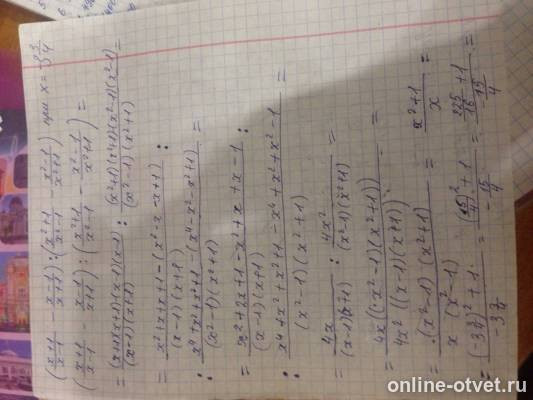 ((x+1)/(x-1) - (x-1)/(x+1)) : ((x²+1)/(x²-1) - (x²-1)/(x²+1)) при x = -3 3/4
((x+1)/(x-1) - (x-1)/(x+1)) : ((x²+1)/(x²-1) - (x²-1)/(x²+1)) =
= ((x+1)(x+1)(x-1)(x-1))/((x-1)(x+1)) : ((x²+1)(x²+1)(x²-1)(x²-1))/((x²-1)(x²+1)) =
= (x²+x+x+1-(x²-x-x+1))/((x-1)(x+1)) :
: (x⁴+x²+x²+1-(x⁴-x²-x²+1))/((x²-1)(x²+1)) =
= (x²+2x+1-x²+x+x-1)/((x-1)(x+1)) :
: (x⁴+x²+x²+1-x⁴+x²+x²-1)/((x²-1)(x²+1)) =
= 4x/((x-1)(x+1)) : 4x²/((x²-1)(x²+1)) =
= 4x((x²-1)(x²+1))/4x²((x-1)(x+1)) =
= (x²-1)(x²+1)/x(x²-1) = (x²+1)/x
= ((-3 3/4)²+1)/(-3 3/4) = ((15/4)²+1)/(-15/4) = (225/16+1)/(-15/4) =
online-otvet.ru